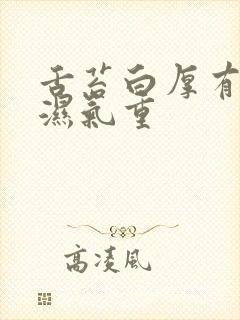 舌苔白厚有
濕氣重
高淩風